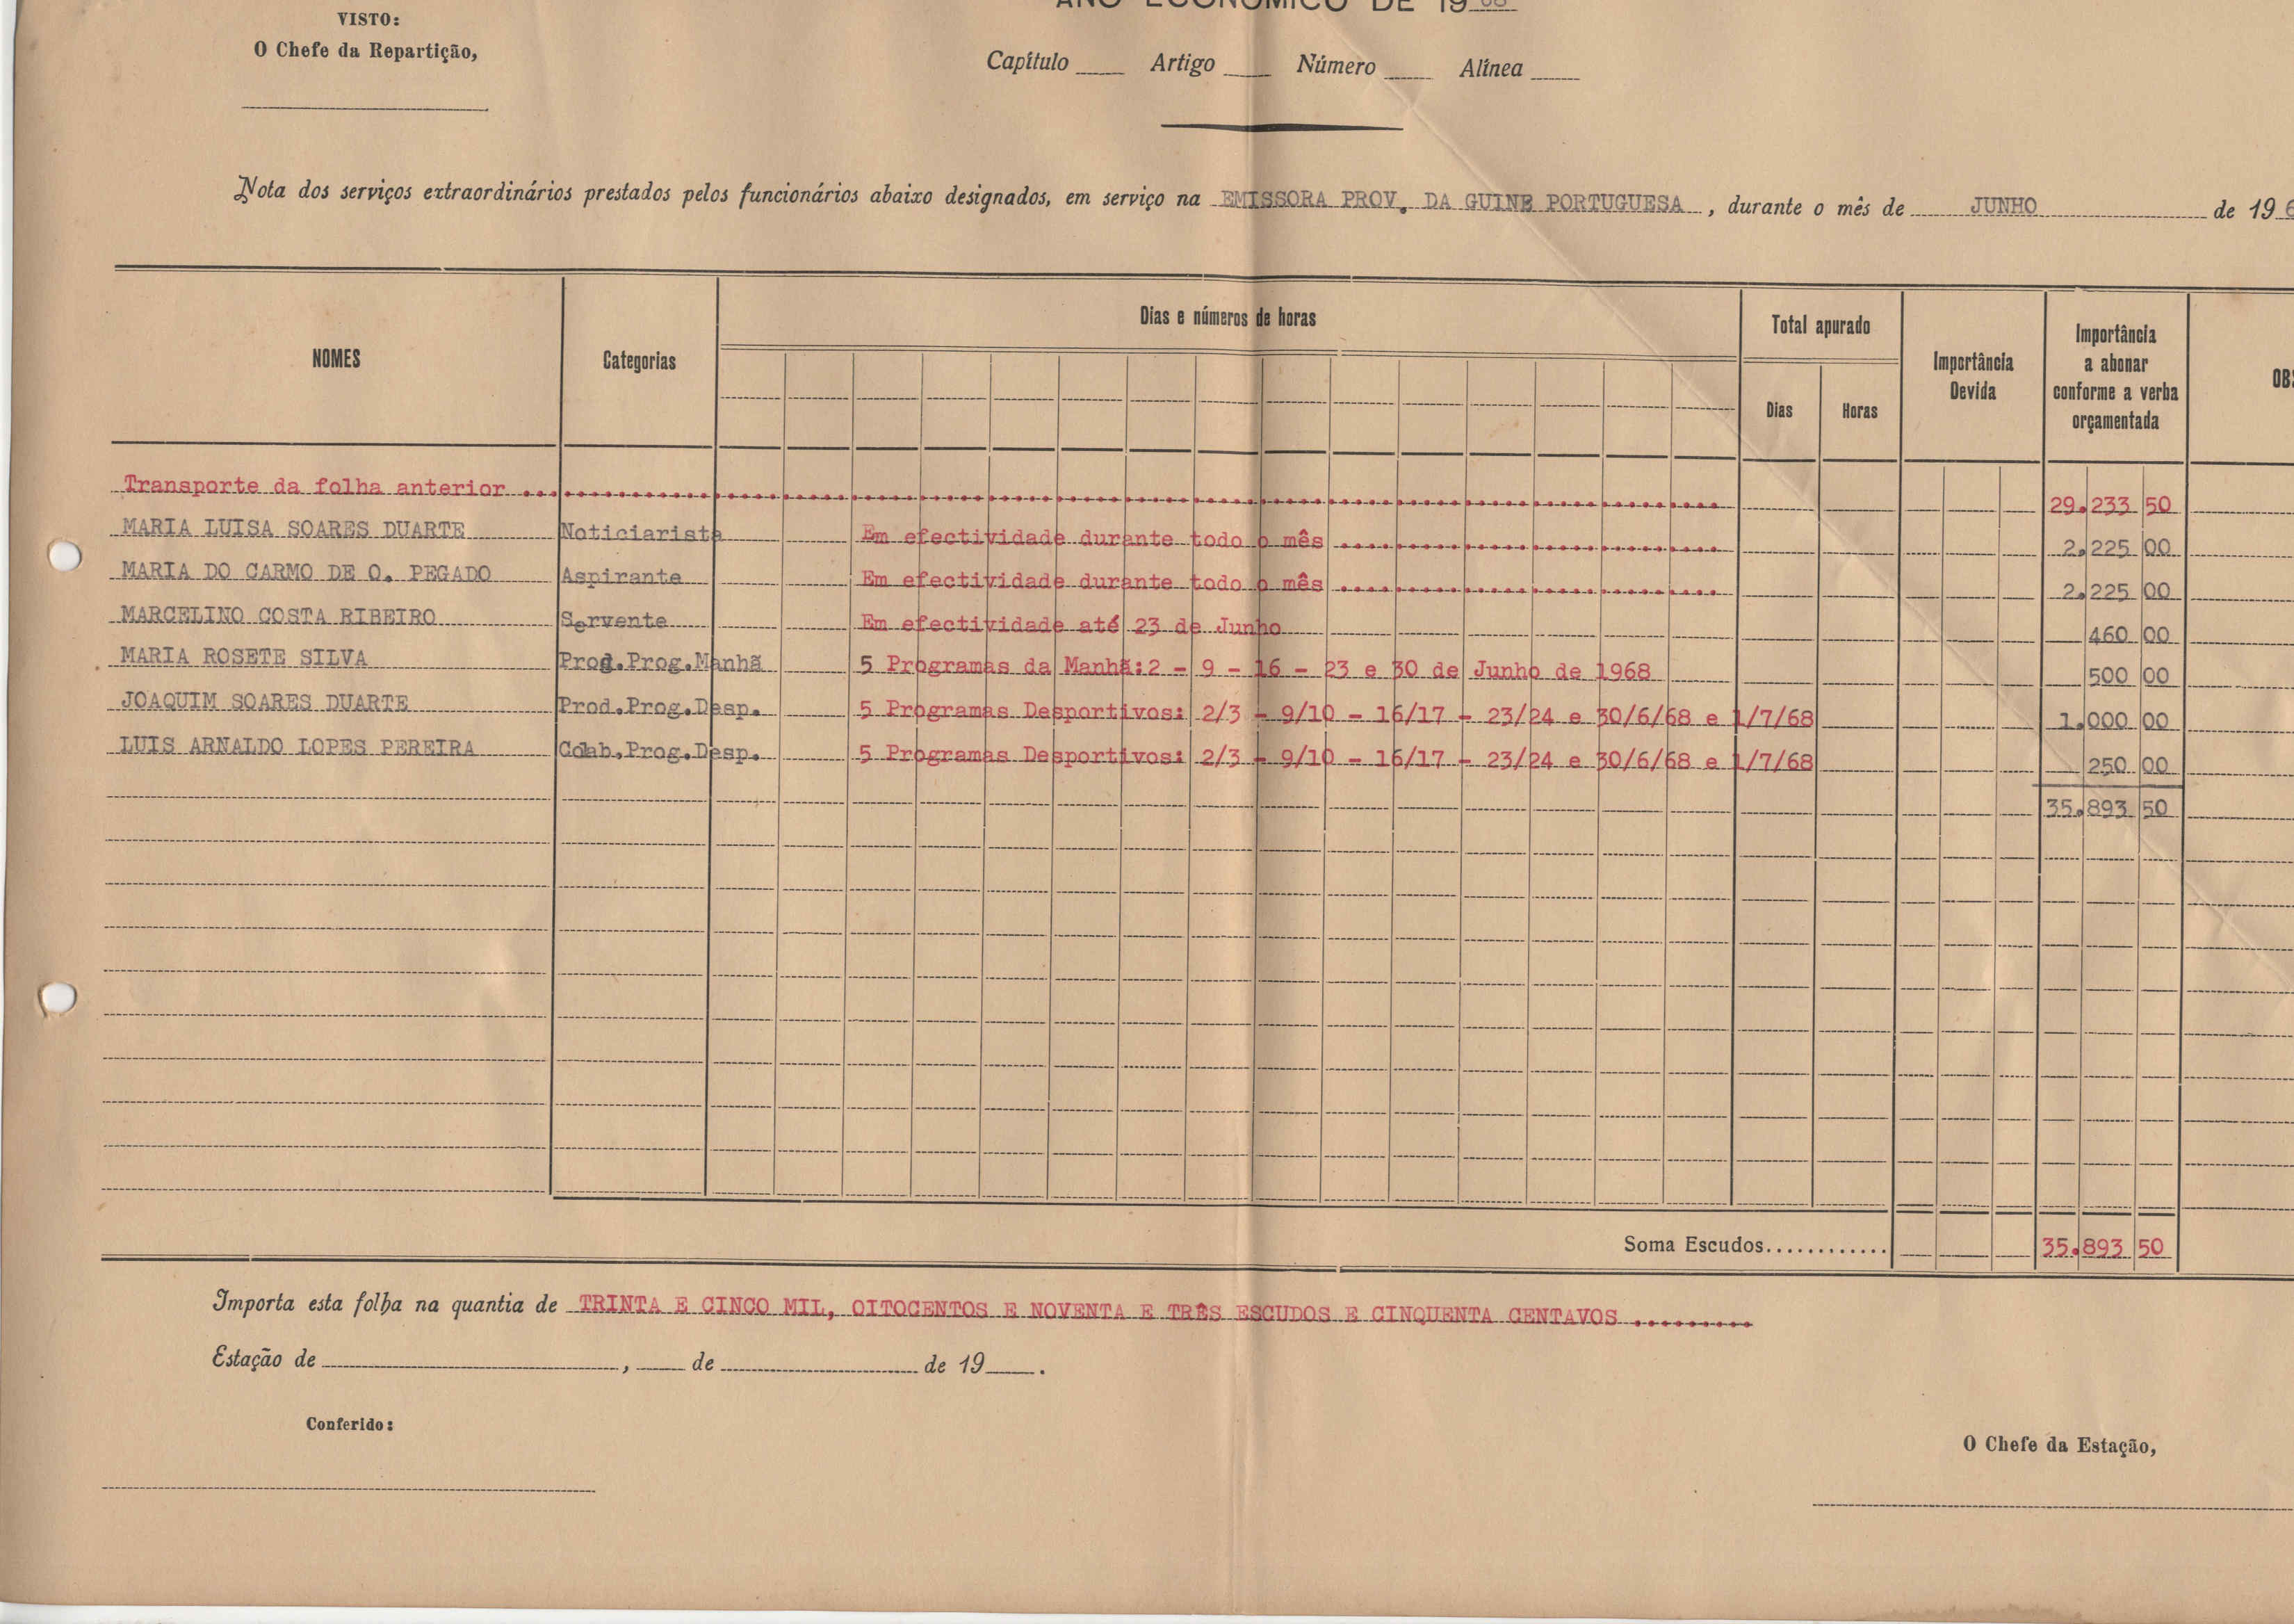 ANO ECONÓMICO DE 1968
VISTO:
O Chefe da Repartição,
Capítulo Artigo Número Alínea
Nota dos serviços extraordinários prestados pelos funcionários abaixo designados, em serviço na EMISSORA PROV. DA GUINE PORTUGUESA, durante o mês de JUNHO de 196
NOMES Categorias Dias e números de horas Total apurado Dias Horas Importância Devida Importância a abonar conforme a verba orçamentada
Transporte da folha anterior ... 29.233 50
MARIA LUISA SOARES DUARTE Noticiarista Em efectividade durante todo o mês ... 2.225 00
MARIA DO CARMO DE O. PEGADO Aspirante Em efectividade durante todo o mês ... 2.225 00
MARCELINO COSTA RIBEIRO Servente Em efectividade até 23 de Junho 460 00
MARIA ROSETE SILVA Prod.Prog.Manhã 5 Programas da Manhã:2 - 9 - 16 - 23 e 30 de Junho de 1968 500 00
JOAQUIM SOARES DUARTE Prod.Prog.Desp. 5 Programas Desportivos: 2/3 - 9/10 - 16/17 - 23/24 e 30/6/68 e 1/7/68 1.000 00
LUIS ARNALDO LOPES PEREIRA Colab.Prog.Desp. 5 Programas Desportivos: 2/3 - 9/10 - 16/17 - 23/24 e 30/6/68 e 1/7/68 250 00
35.893 50
Soma Escudos............ 35.893 50
Importa esta folha na quantia de TRINTA E CINCO MIL, OITOCENTOS E NOVENTA E TRÊS ESCUDOS E CINQUENTA CENTAVOS .........
Estação de , de de 19 .
Conferido:
O Chefe da Estação,